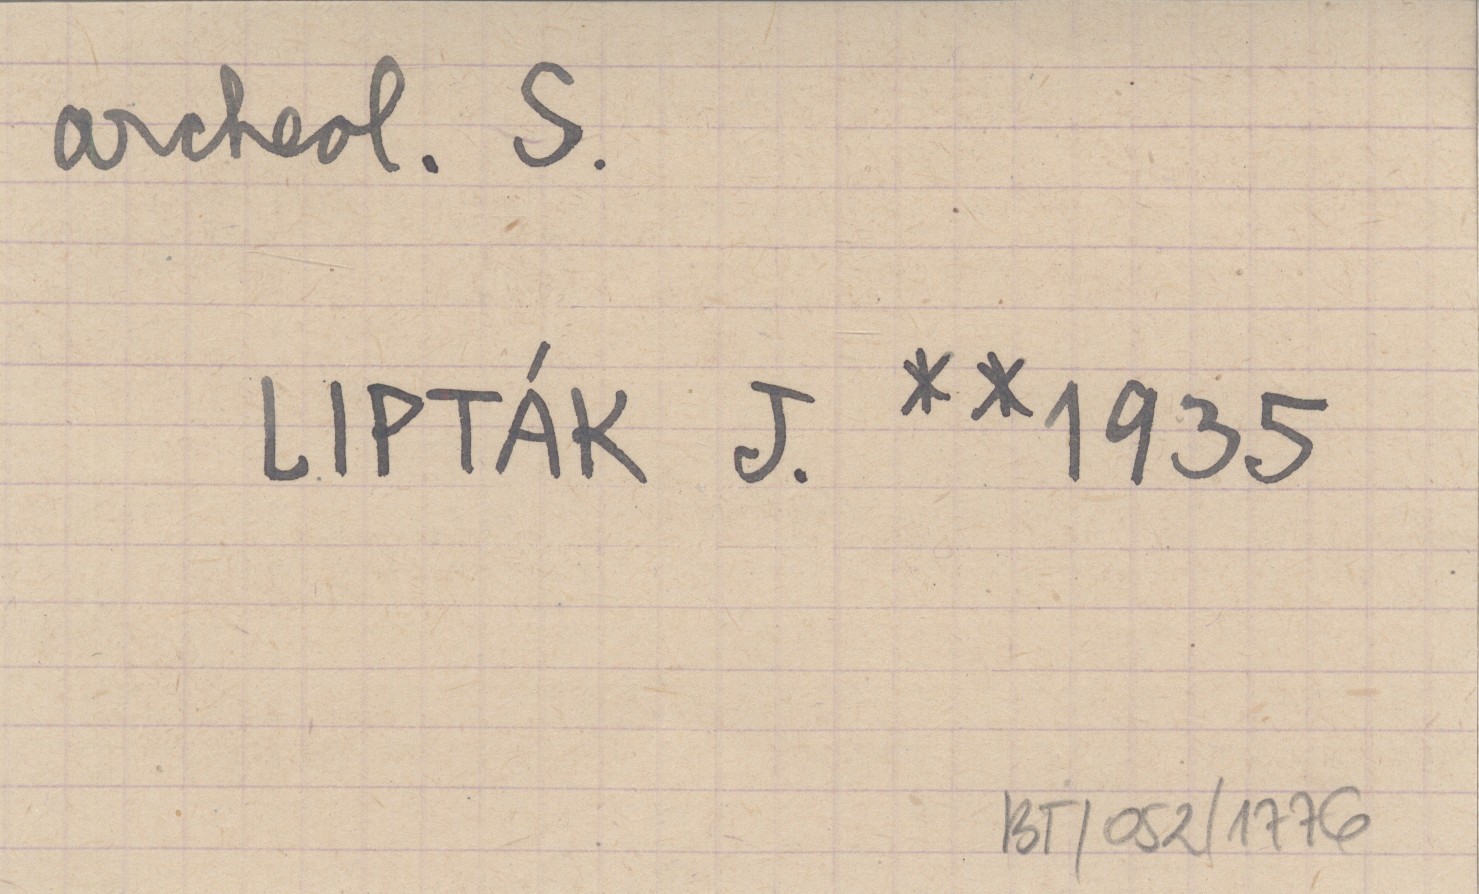 archeol. S.
LIPTÁK J. **1935
BT/052/1776